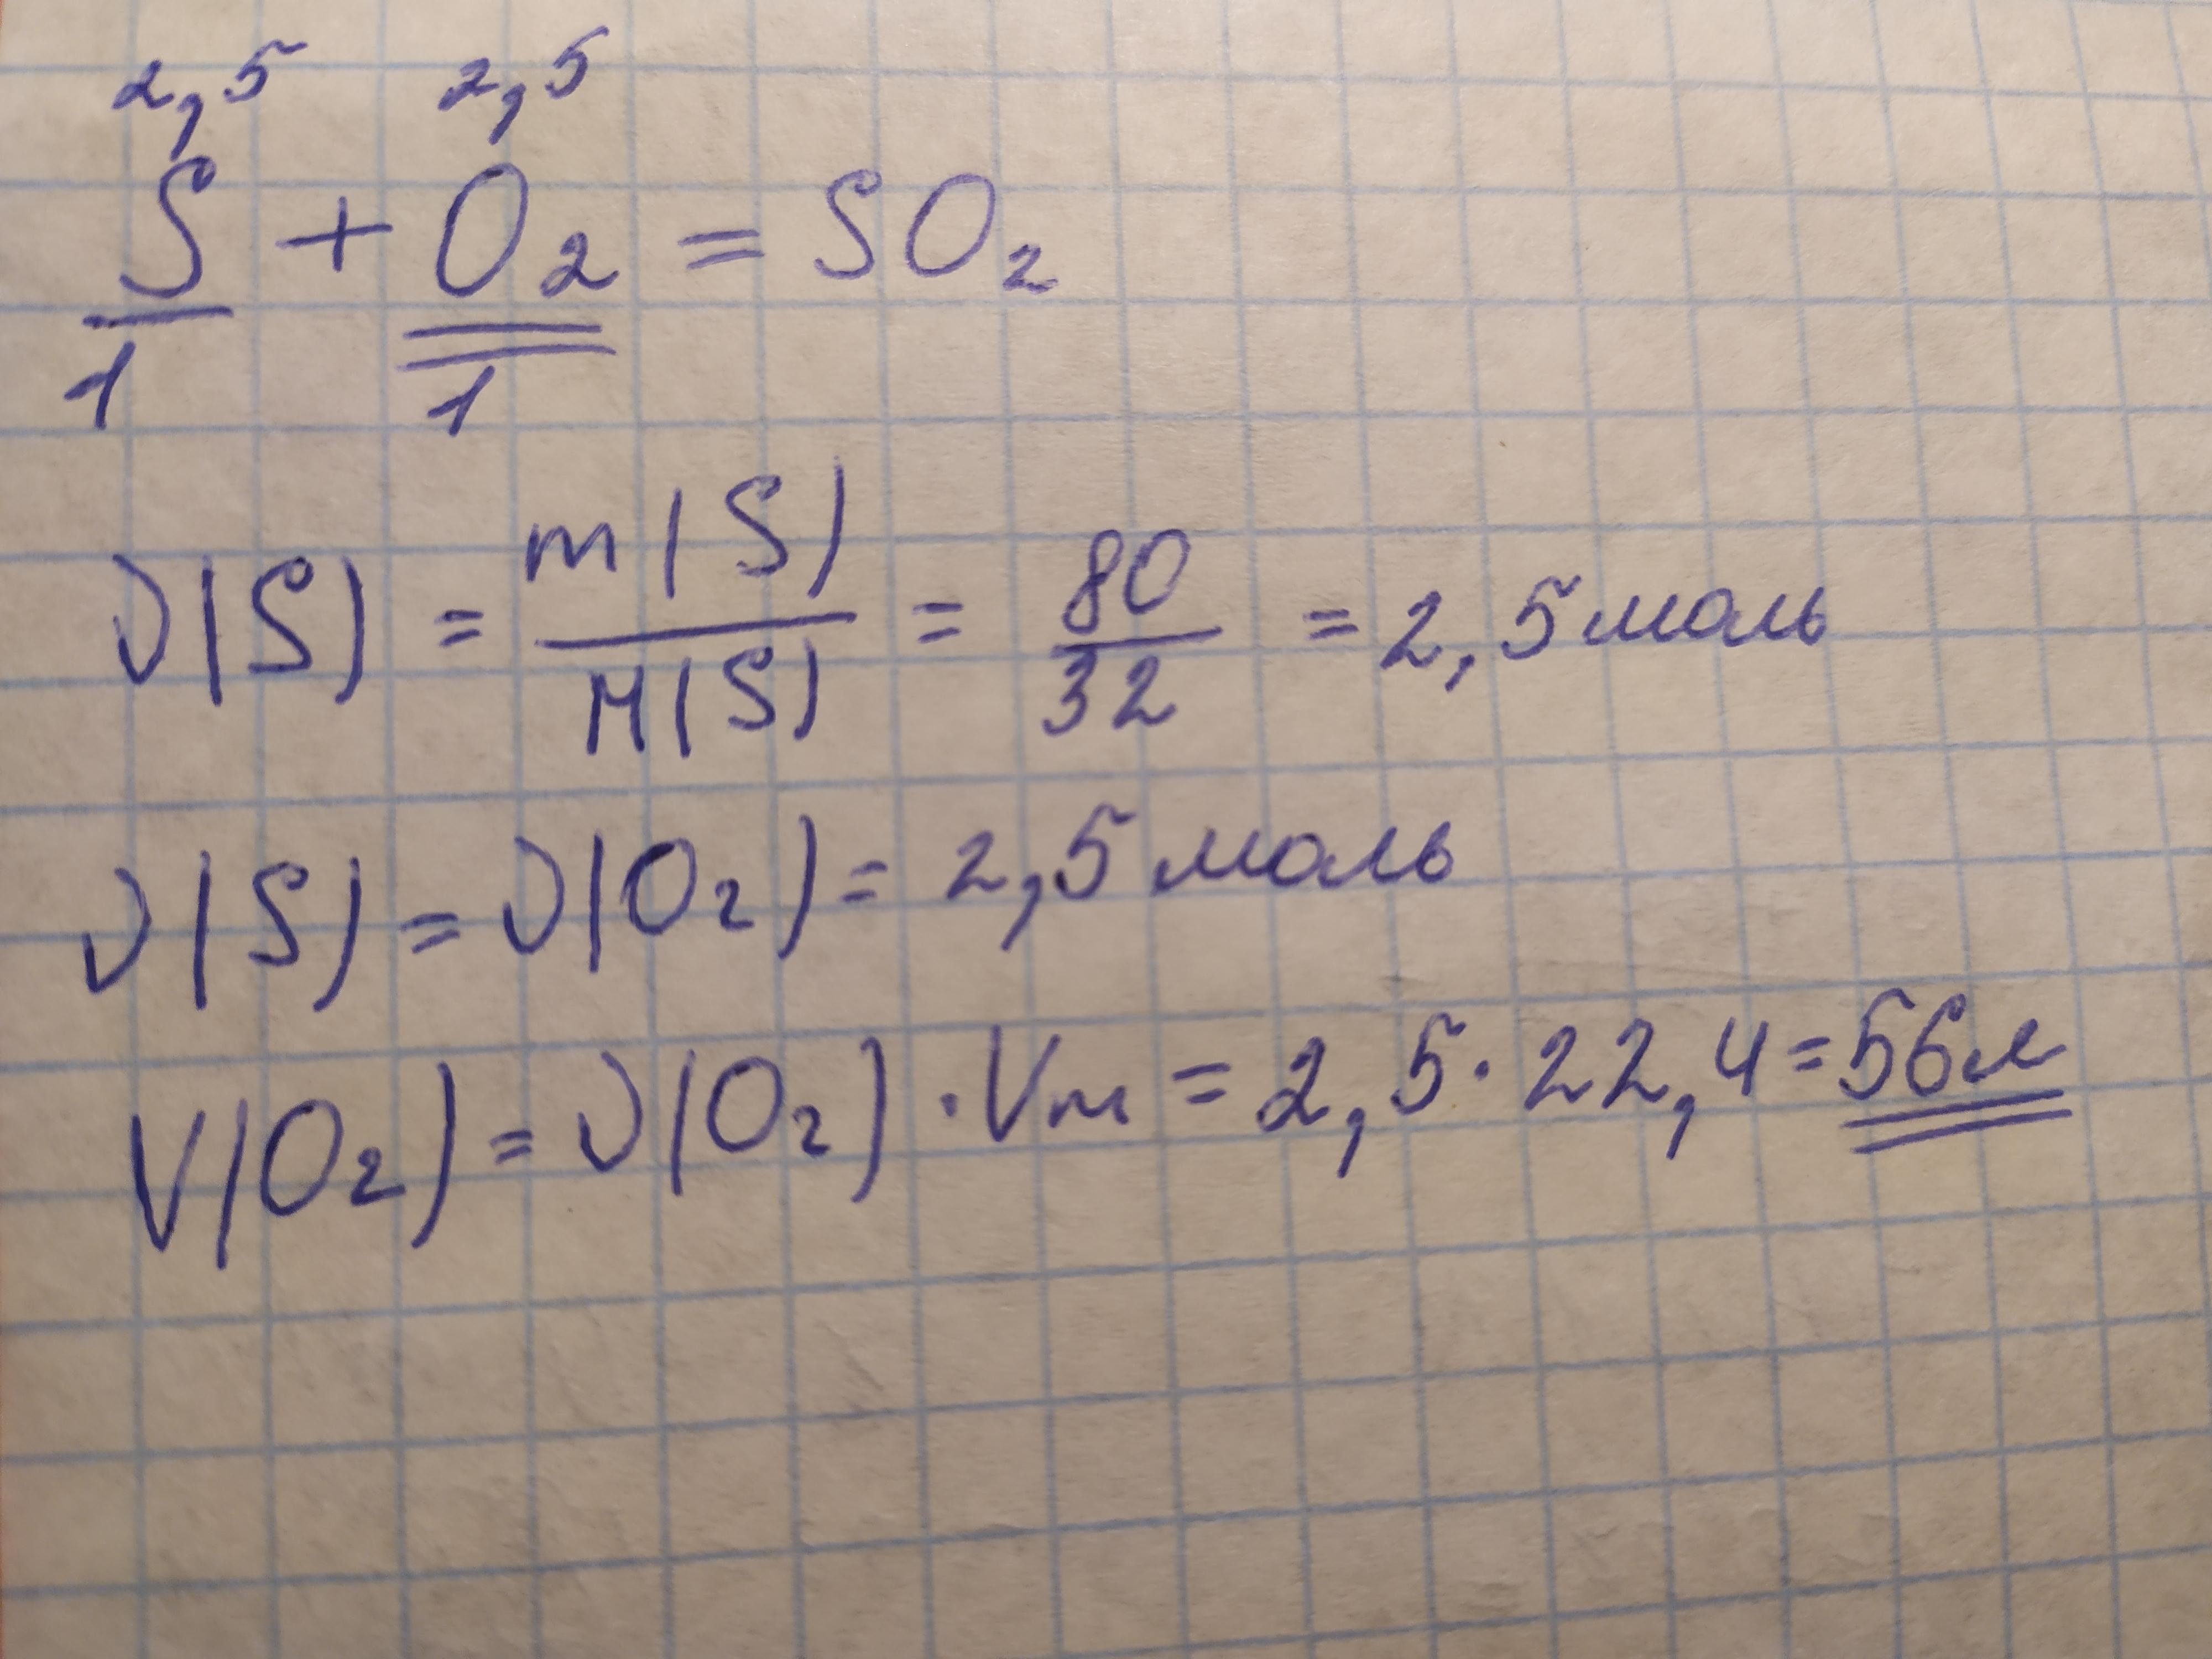 2,5 2,5
S + O₂ = SO₂
1 1
ν(S) = m(S)/M(S) = 80/32 = 2,5 моль
ν(S) = ν(O₂) = 2,5 моль
V(O₂) = ν(O₂) · Vm = 2,5 · 22,4 = 56 л